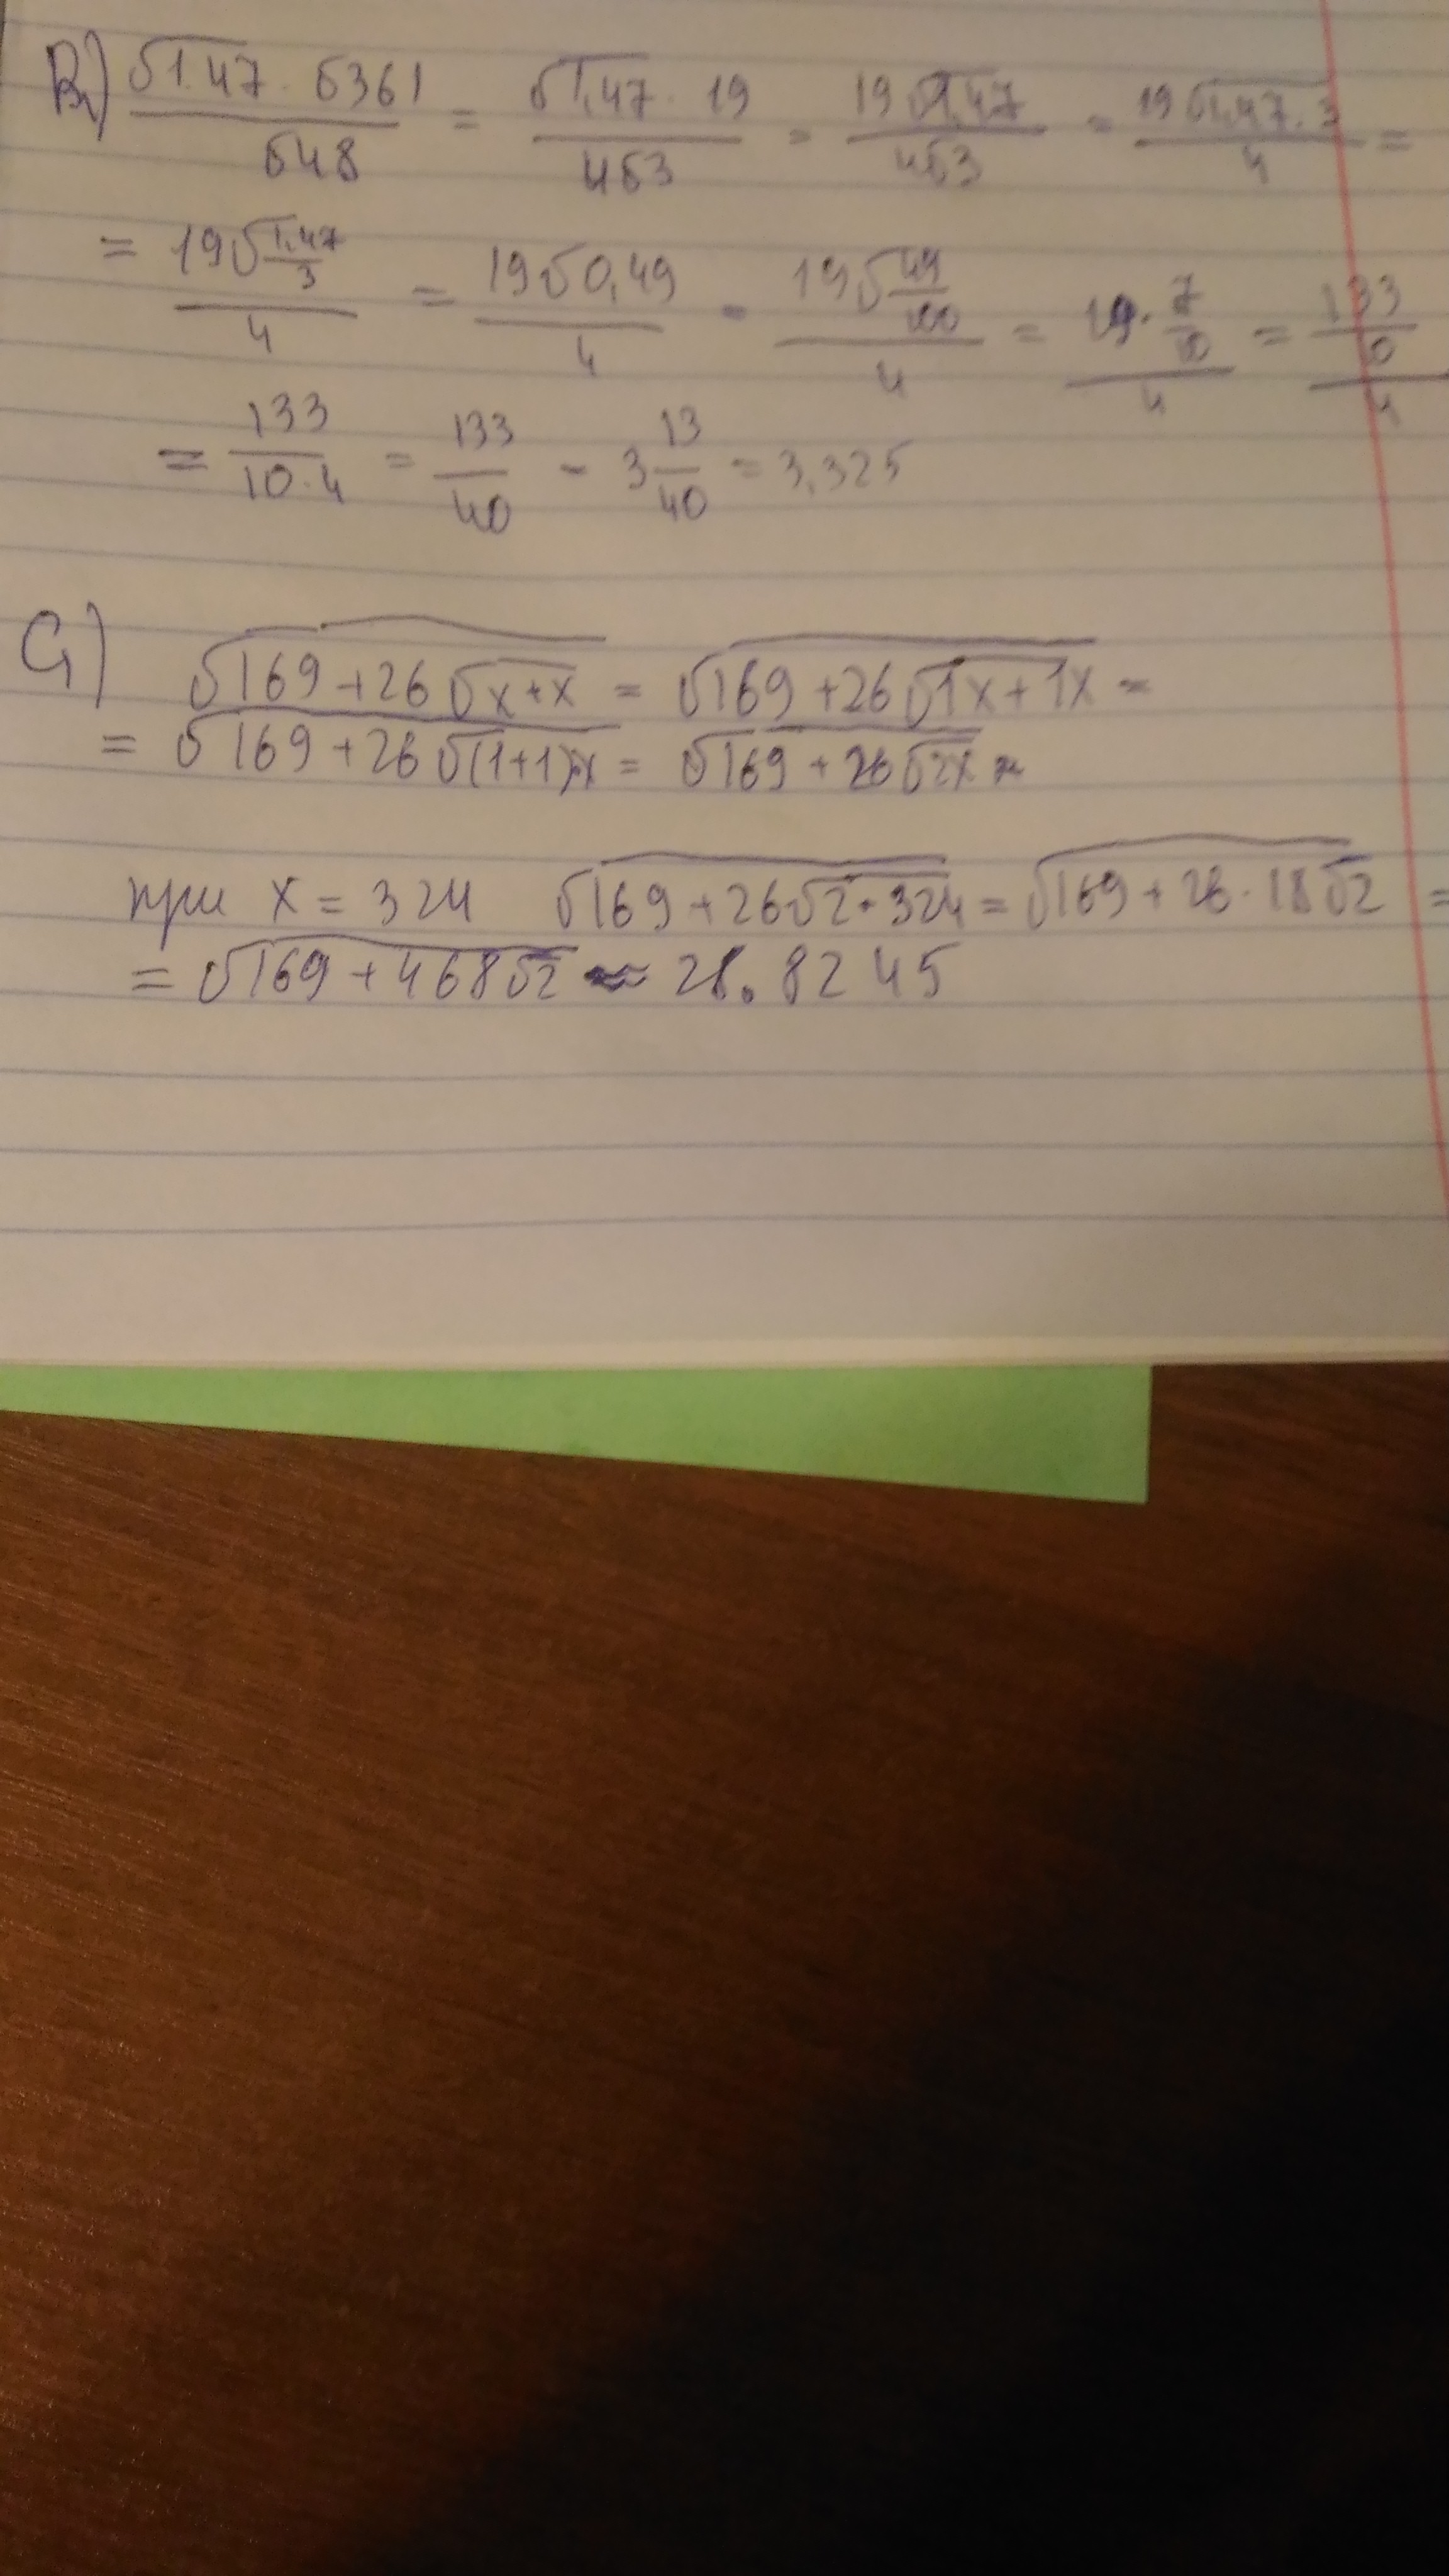 B1) √1.47 · √361 / √48 = √1,47 · 19 / 4√3 = 19√1,47 / 4√3 = 19√1,47:3 / 4 =
= 19√(1,47/3) / 4 = 19√0,49 / 4 = 19√(49/100) / 4 = 19 · 7/10 / 4 = 133/10 / 4
= 133 / 10·4 = 133/40 = 3 13/40 = 3,325
C1) √(169+26√(x+x)) = √(169+26√(1x+1x)) =
= √(169+26√((1+1)x)) = √(169+26√(2x)) =
при x = 324 √(169+26√(2·324)) = √(169+26·18√2) =
= √(169+468√2) ≈ 28.8245